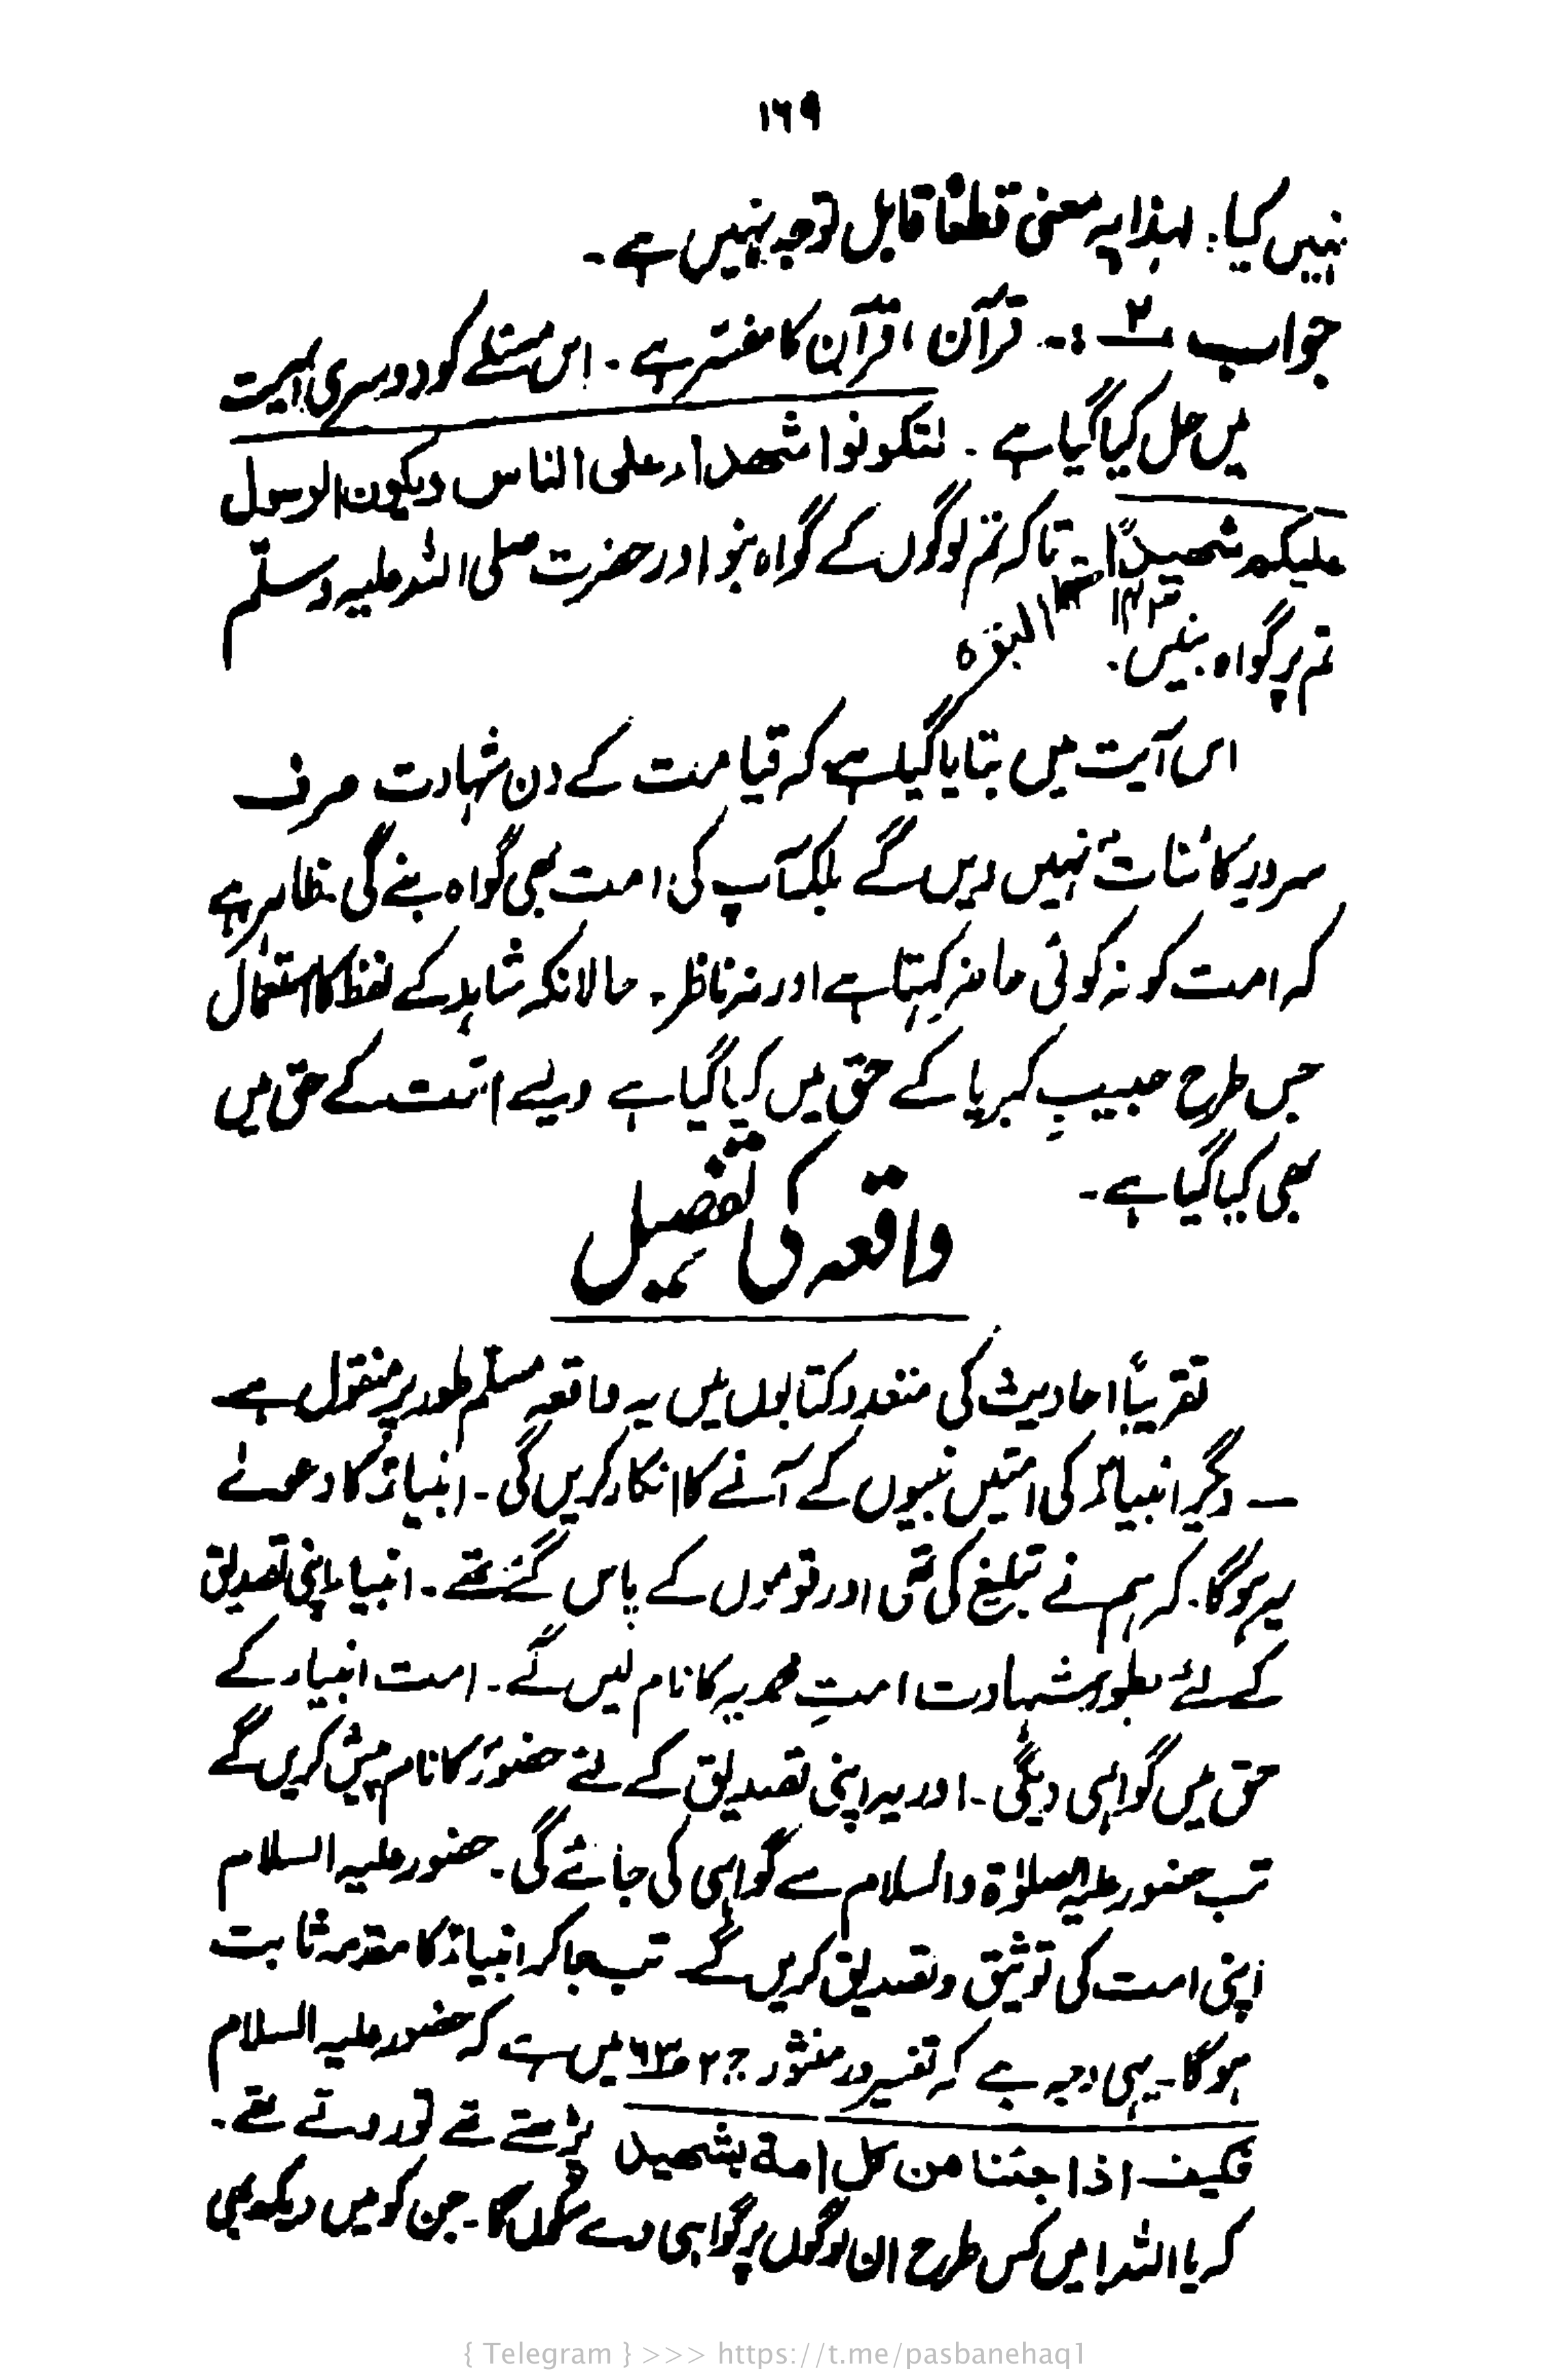 ۱۶۹
نہیں کیا: لہذا یہ معنی قطعاً قابل توجہ نہیں ہے۔
جواب ۲ :۔ قرآن، قرآن کا مفسّر ہے۔ اس مسئلے کو دوسری آیت
میں حل کیا گیا ہے۔ لتکونوا شھداء علی الناس ویکون الرسول
علیکم شھیداً۔ تاکہ تم لوگوں کے گواہ بنو اور حضرت صلی اللہ علیہ وسلم
تم پر گواہ بنیں۔ ۱۴۳ البقرہ
اس آیت میں بتایا گیا ہے کہ قیامت کے دن شہادت صرف
سرور کائنات نہیں دیں گے بلکہ آپ کی امت بھی گواہ بنے گی ظاہر ہے
کہ امت کو نہ کوئی حاضر کہتا ہے اور نہ ناظر۔ حالانکہ شاہد کے لفظ کا استعمال
جس طرح حبیبِ کبریا کے حق میں کیا گیا ہے ویسے امّت کے حق میں
بھی کیا گیا ہے۔
واقعہ کی تفصیل
تقریباً احادیث کی متعدد کتابوں میں یہ واقعہ مسلّم طور پر منقول ہے
— دیگر انبیاءؑ کی امتیں نبیوں کے آنے کا انکار کریں گی۔ انبیاءؑ کا دعویٰ
یہ ہوگا۔ کہ ہم نے تبلیغ کی تھی اور قوموں کے پاس گئے تھے۔ انبیاء اپنی تصدیق
کے لئے بطور شہادت امتِ محمدیہ کا نام لیں گے۔ امت انبیاء کے
حق میں گواہی دیگی۔ اور یہ اپنی تصدیق کے لئے حضورؐ کا نام پیش کریں گے
تب حضور علیہ الصلوٰۃ والسلام سے گواہی لی جائے گی۔ حضور علیہ السلام
اپنی امت کی توثیق و تصدیق کریں گے۔ تب جا کر انبیاءؑ کا مقدمہ ثابت
ہوگا۔ یہی وجہ ہے کہ تفسیر در منثور ج۲ ص۱۶۳ میں ہے کہ حضور علیہ السلام
فکیف اذا جئنا من کل امة بشھید پڑھتے تھے تو روتے تھے۔
کہ یا اللہ! میں کس طرح ان لوگوں پر گواہی دے سکوں گا۔ جن کو میں دیکھ بھی
{ Telegram } >>> https://t.me/pasbanehaq1